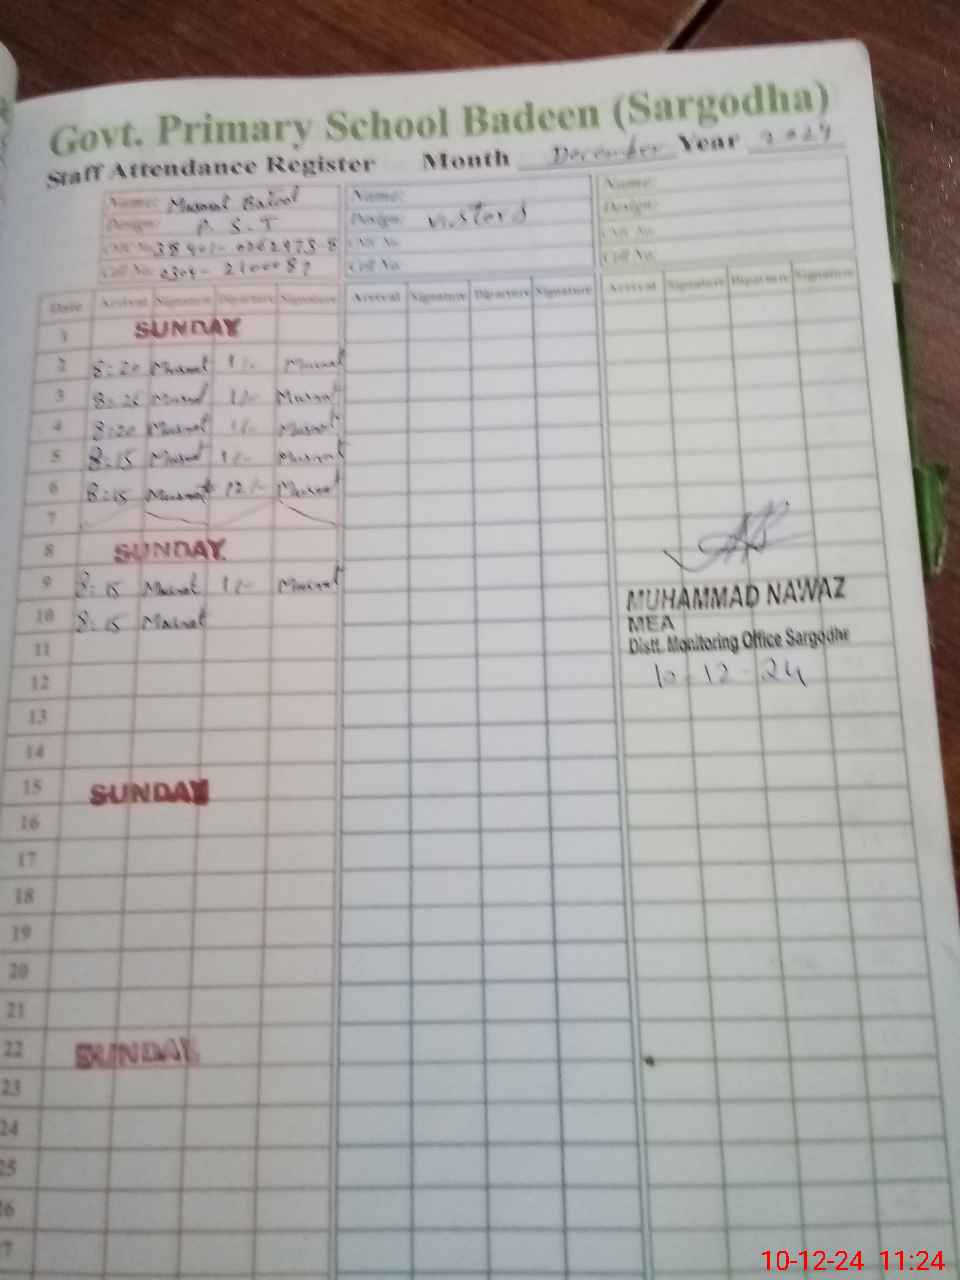 Govt. Primary School Badeen (Sargodha)
Staff Attendance Register Month December Year 2024
Name: Musarat Batool
Design: P.S.T
CNIC No.
Cell No. 0304-
Name:
Design: Visitors
CNIC No.
Cell No.
Name:
Design:
CNIC No.
Cell No.
Date Arrival Signature Departure Signature Arrival Signature Departure Signature Arrival Signature Departure Signature
1 SUNDAY
2 8:20 Musarat 1/- Musarat
3 8:26 Musarat 1/- Musarat
4 8:20 Musarat 1/- Musarat
5 8:15 Musarat 1/- Musarat
6 8:15 Musarat 12/- Musarat
7
8 SUNDAY
9 8:15 Musarat 1/- Musarat
10 8:15 Musarat
11
12
13
14
15 SUNDAY
16
17
18
19
20
21
22 SUNDAY
23
24
25
26
27
MUHAMMAD NAWAZ
MEA
Distt. Monitoring Office Sargodha
10-12-24
10-12-24 11:24